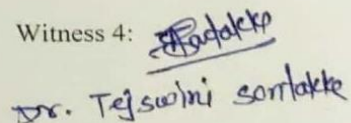 Witness 4:
Dr. Tejswini sontakke